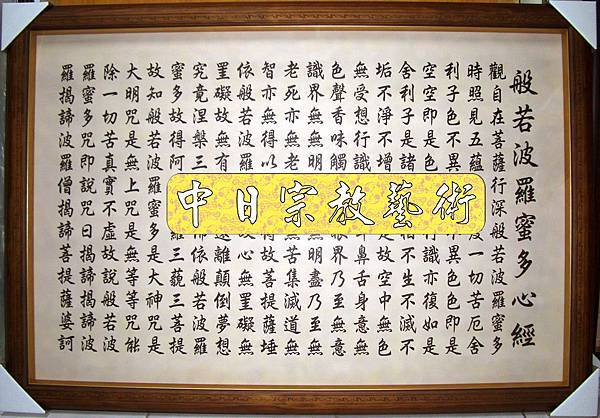 般若波羅蜜多心經
觀自在菩薩行深般若波羅蜜多
時照見五蘊 一切苦厄舍
利子色不異 異色色即是
空空即是色 行識亦復如是
舍利子是諸 相不生不滅不
垢不淨不增 是故空中無色
無受想行識 鼻舌身意無
色聲香味觸 眼界乃至無意
識界無無明 無明盡乃至無
老死亦無老 無苦集滅道無
智亦無得以 得故菩提薩埵
依般若波羅 心無罣礙無
罣礙故無有 遠離顛倒夢想
究竟涅槃三 佛依般若波羅
蜜多故得阿 羅三藐三菩提
故知般若波羅蜜多是大神咒是
大明咒是無上咒是無等等咒能
除一切苦真實不虛故說般若波
羅蜜多咒即說咒曰揭諦揭諦波
羅揭諦波羅僧揭諦菩提薩婆訶
中日宗教藝術